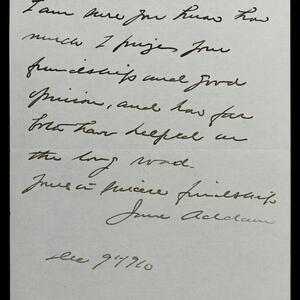 I am sure you know how
much I prize your
friendship and good
opinion, and how far
both have helped on
the long road.
Yours in sincere friendship
Jane Addams
Dec 9" 1910